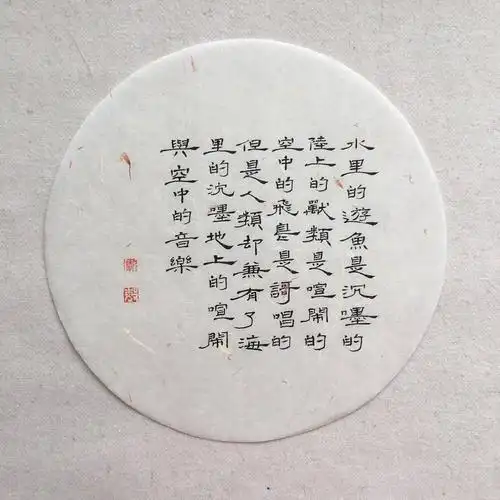 水里的遊魚是沉嚜的
陸上的獸類是喧閙的
空中的飛鳥是謌唱的
但是人類却兼有了海
里的沉嚜地上的喧閙
與空中的音樂